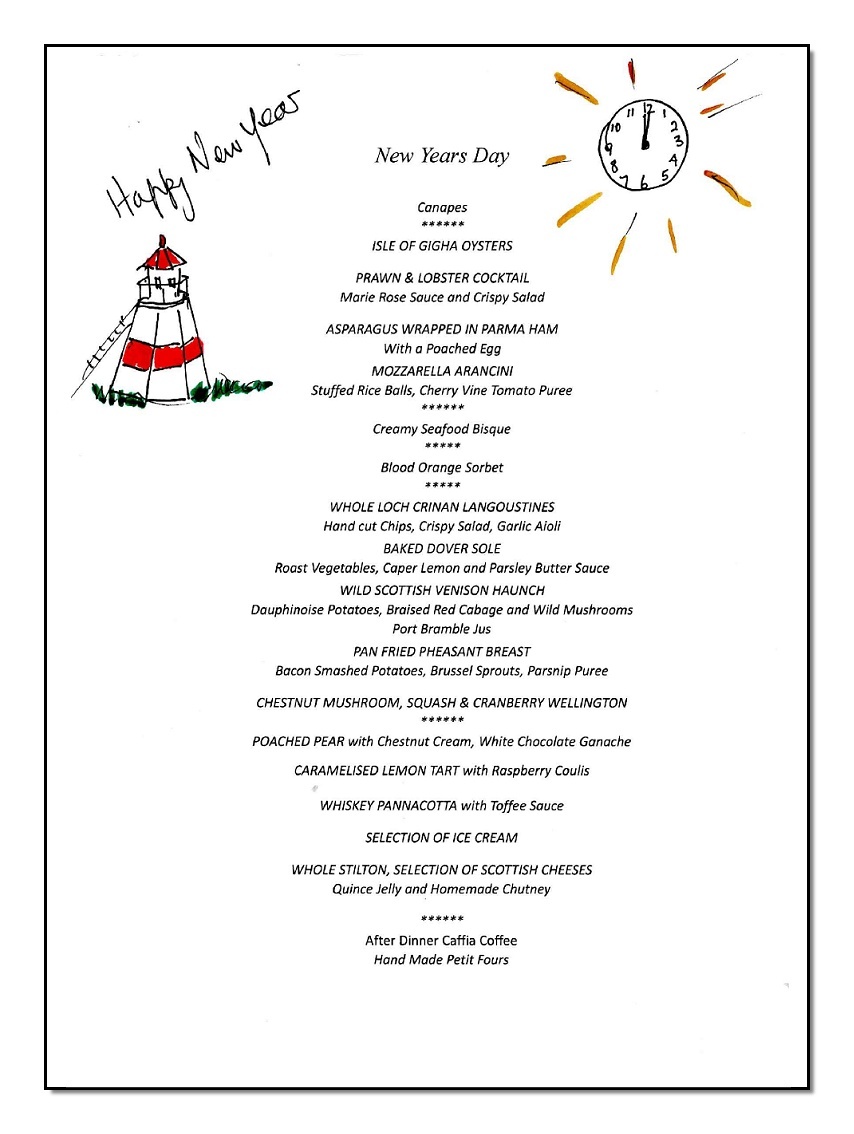 Happy New Year
12
1
2
3
4
5
6
7
8
9
10
11
New Years Day
Canapes
******
ISLE OF GIGHA OYSTERS
PRAWN & LOBSTER COCKTAIL
Marie Rose Sauce and Crispy Salad
ASPARAGUS WRAPPED IN PARMA HAM
With a Poached Egg
MOZZARELLA ARANCINI
Stuffed Rice Balls, Cherry Vine Tomato Puree
******
Creamy Seafood Bisque
*****
Blood Orange Sorbet
*****
WHOLE LOCH CRINAN LANGOUSTINES
Hand cut Chips, Crispy Salad, Garlic Aioli
BAKED DOVER SOLE
Roast Vegetables, Caper Lemon and Parsley Butter Sauce
WILD SCOTTISH VENISON HAUNCH
Dauphinoise Potatoes, Braised Red Cabage and Wild Mushrooms
Port Bramble Jus
PAN FRIED PHEASANT BREAST
Bacon Smashed Potatoes, Brussel Sprouts, Parsnip Puree
CHESTNUT MUSHROOM, SQUASH & CRANBERRY WELLINGTON
******
POACHED PEAR with Chestnut Cream, White Chocolate Ganache
CARAMELISED LEMON TART with Raspberry Coulis
WHISKEY PANNACOTTA with Toffee Sauce
SELECTION OF ICE CREAM
WHOLE STILTON, SELECTION OF SCOTTISH CHEESES
Quince Jelly and Homemade Chutney
******
After Dinner Caffia Coffee
Hand Made Petit Fours